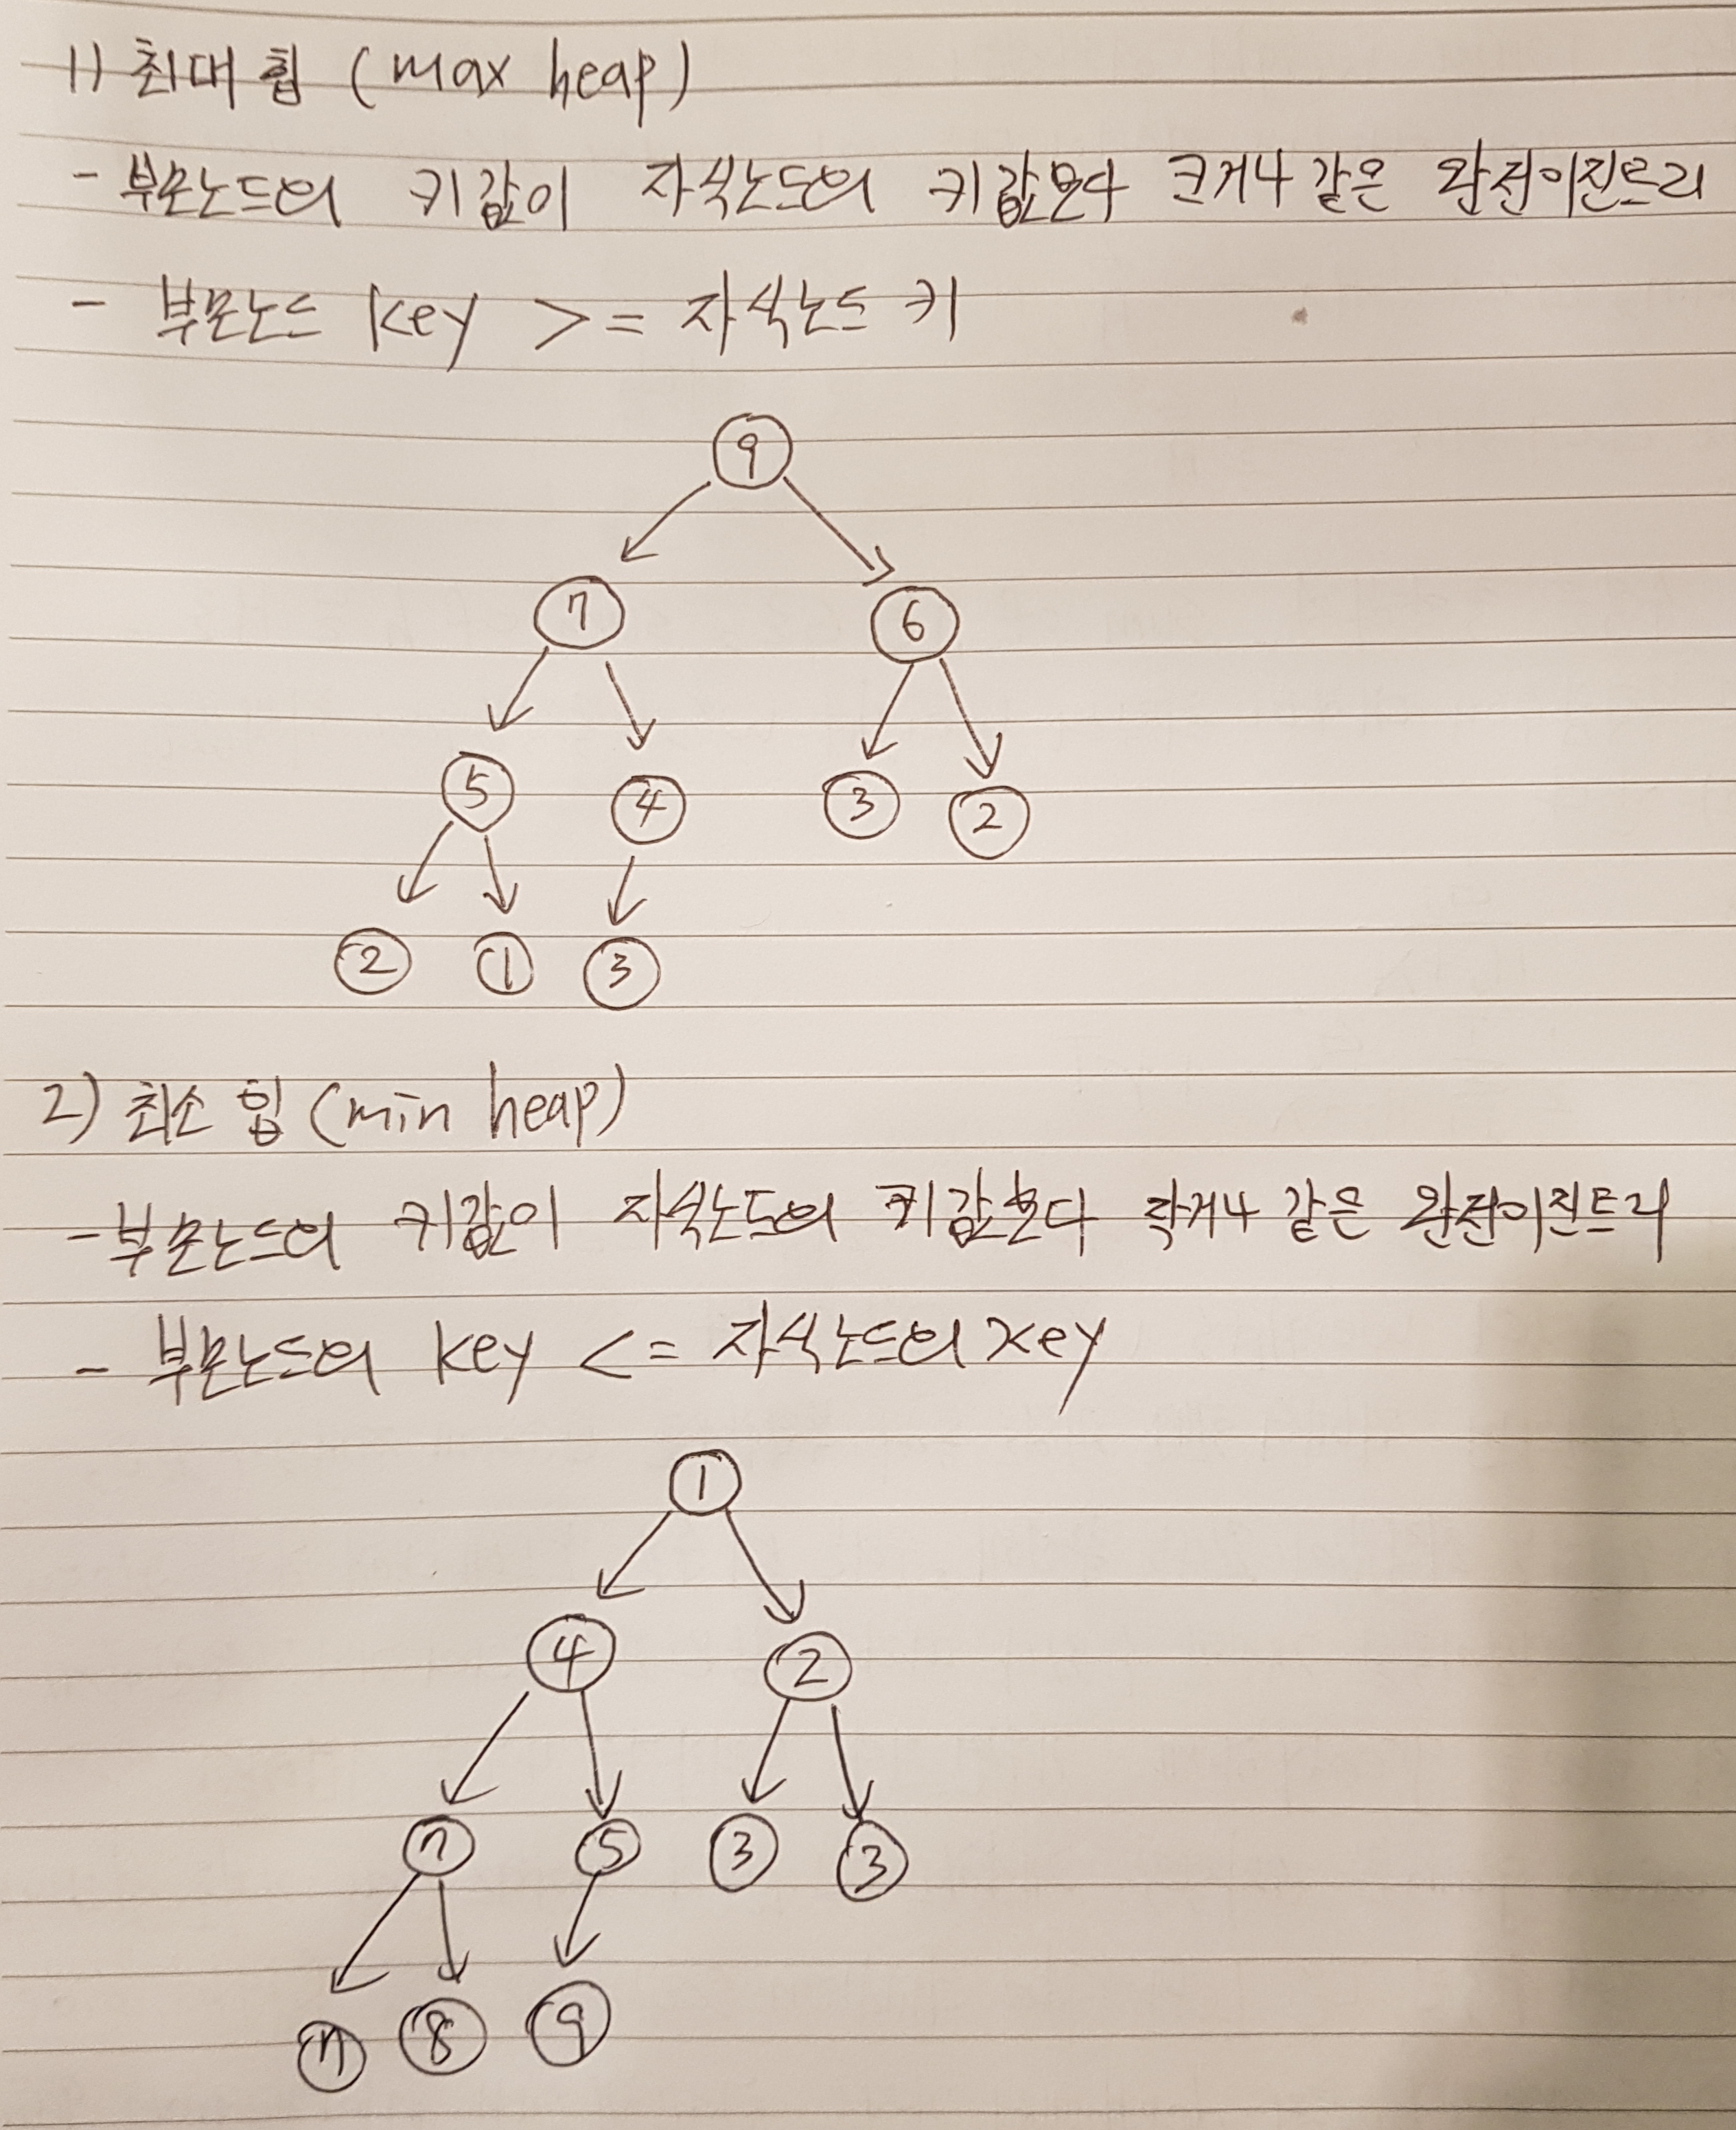 1) 최대 힙 (max heap)
- 부모노드의 키값이 자식노드의 키값보다 크거나 같은 완전이진트리
- 부모노드 key >= 자식노드 키
9
7 6
5 4 3 2
2 1 3
2) 최소 힙 (min heap)
- 부모노드의 키값이 자식노드의 키값보다 작거나 같은 완전이진트리
- 부모노드의 key <= 자식노드의 key
1
4 2
7 5 3 3
7 8 9